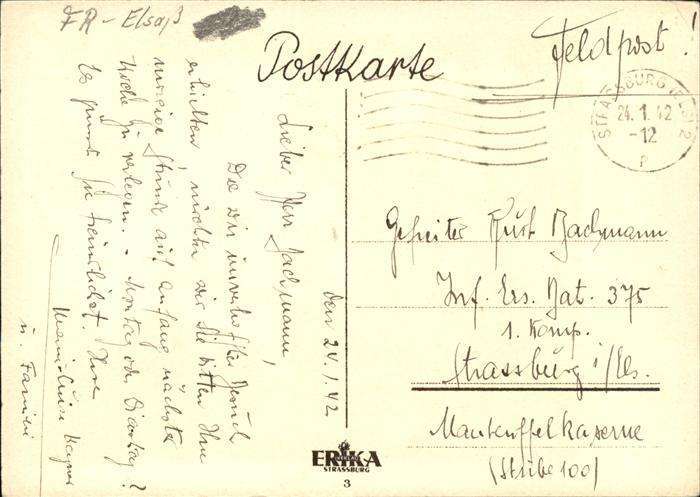 FR-Elsaß
Postkarte
Feldpost!
STRASSBURG (ELS) 2
24.1.42
-12
den 24.1.42
Lieber Herr Jachmann,
Da wir unverhofften Besuch
erhielten, möchten wir Sie bitten Ihre
Stunde auf Anfang nächster
Woche zu verlegen. - Montag oder Dienstag?
Es grüsst Sie freundlichst Ihre
Marie-Luise
u. Familie
Gefreiter Kurt Jachmann
Inf. Ers. Bat. 375
1. Komp.
Strassburg i/Els.
Manteuffelkaserne
(Stube 100)
ERIKA
STRASSBURG
3